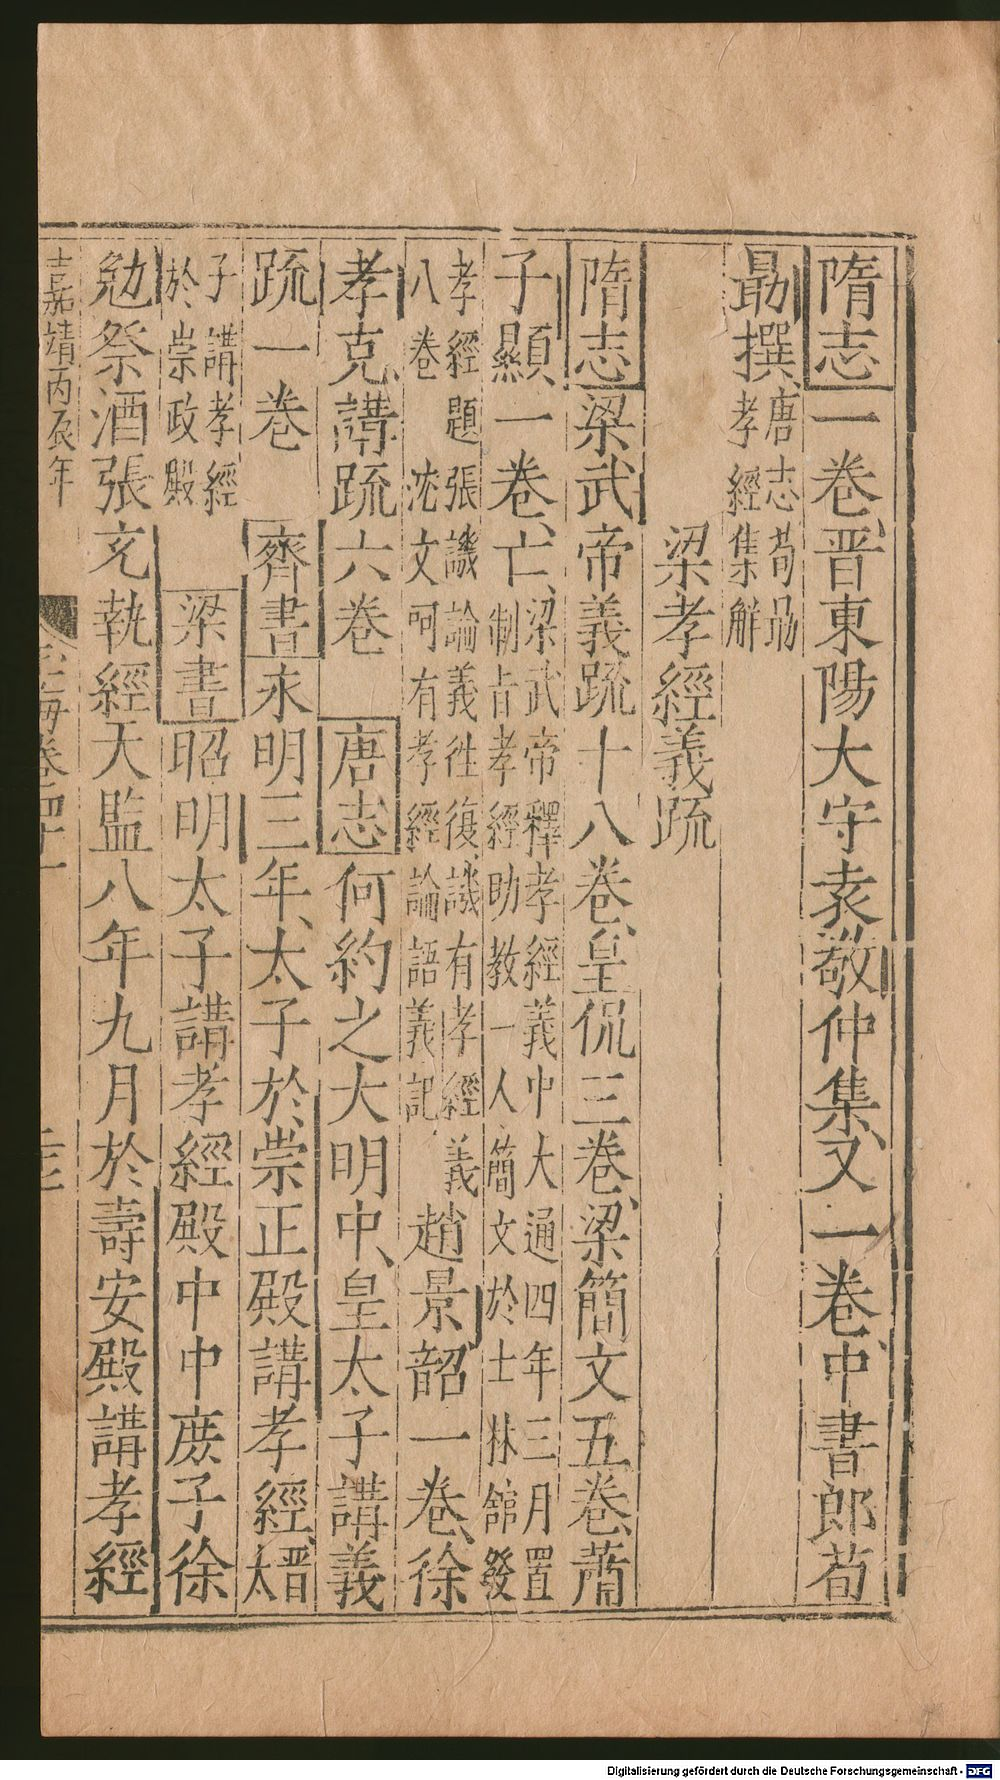 隋志一卷、晋東陽大守袁敬仲集、又一卷、中書郎荀
勗撰、唐志荀勗
孝經集觧
梁孝經義䟽
隋志梁武帝義䟽十八卷、皇侃三卷、梁簡文五卷、蕭
子顯一卷、亡、梁武帝釋孝經義中大通四年三月置
制旨孝經助教一人簡文於士林舘發
孝經題張譏論義徃復、譏有孝經義
八卷 沈文阿有孝經論語義記 趙景韶一卷、徐
孝克講䟽六卷 唐志何約之大明中、皇太子講義
䟽一卷 齊書永明三年、太子於崇正殿講孝經、晋
太
子講孝經
於崇政殿 梁書昭明太子講孝經殿中中庶子徐
勉祭酒張充執經天監八年九月於壽安殿講孝經
嘉靖丙辰年 玉海卷四十一
Digitalisierung gefördert durch die Deutsche Forschungsgemeinschaft - DFG